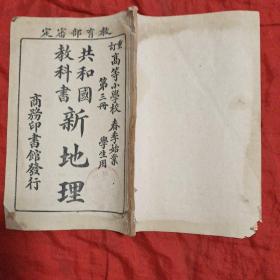 教育部審定
重訂
高等小學校
春季始業
學生用
第三冊
共和國
教科書
新地理
商務印書館發行